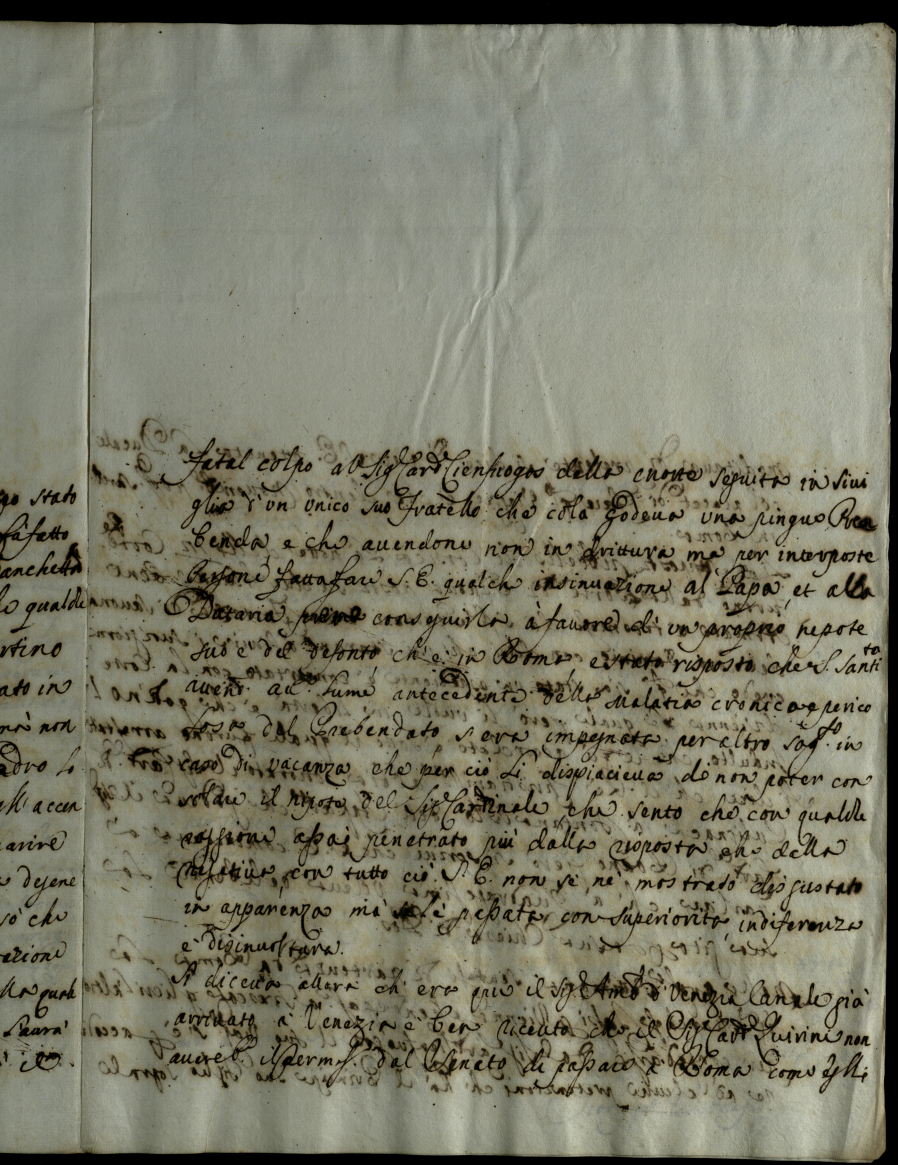 go stato
fafatto
anchetta
le qualche
rtino
ato in
ma non
edro lo
accen
arire
e desene
sò che
azione
lla quale
Saara
fatal colpo al Sig.r Card. Cienfuegos della morte seguita in Sivi
glia d'un unico suo Fratello che cola godeva una pingue Pre
benda e che avendone non in drittura ma per interposte
Persone fatta fare S. E. qualche insinuazione al Papa et alla
Dataria conseguirla à favore di un proprio nepote
sud.e del defonto ch'e in Roma e stato risposto che S. Santi.ta
avend. lume antecedente della malatia cronica e perico
losa del Prebendato s'era impegnata per altro sog.to in
caso di vacanza che per ciò Li dispiaceva de non poter con
solare il nipote del Sig. Cardinale che sento che con qualche
raggione assai penetrato più dalla risposta che della
negativa con tutto ciò S. E. non se ne mostrato disgustato
in apparenza ma se l'è passata con superiorità indiferenza
e disinvoltura.
Si diceva allora ch'era quà il Sig. Amb. d'Venezia Canale già
arrivato à Venezia e ben riceuto che il Sig. Card. Quirini non
avereb. il permis. dal Senato di passare à Roma come